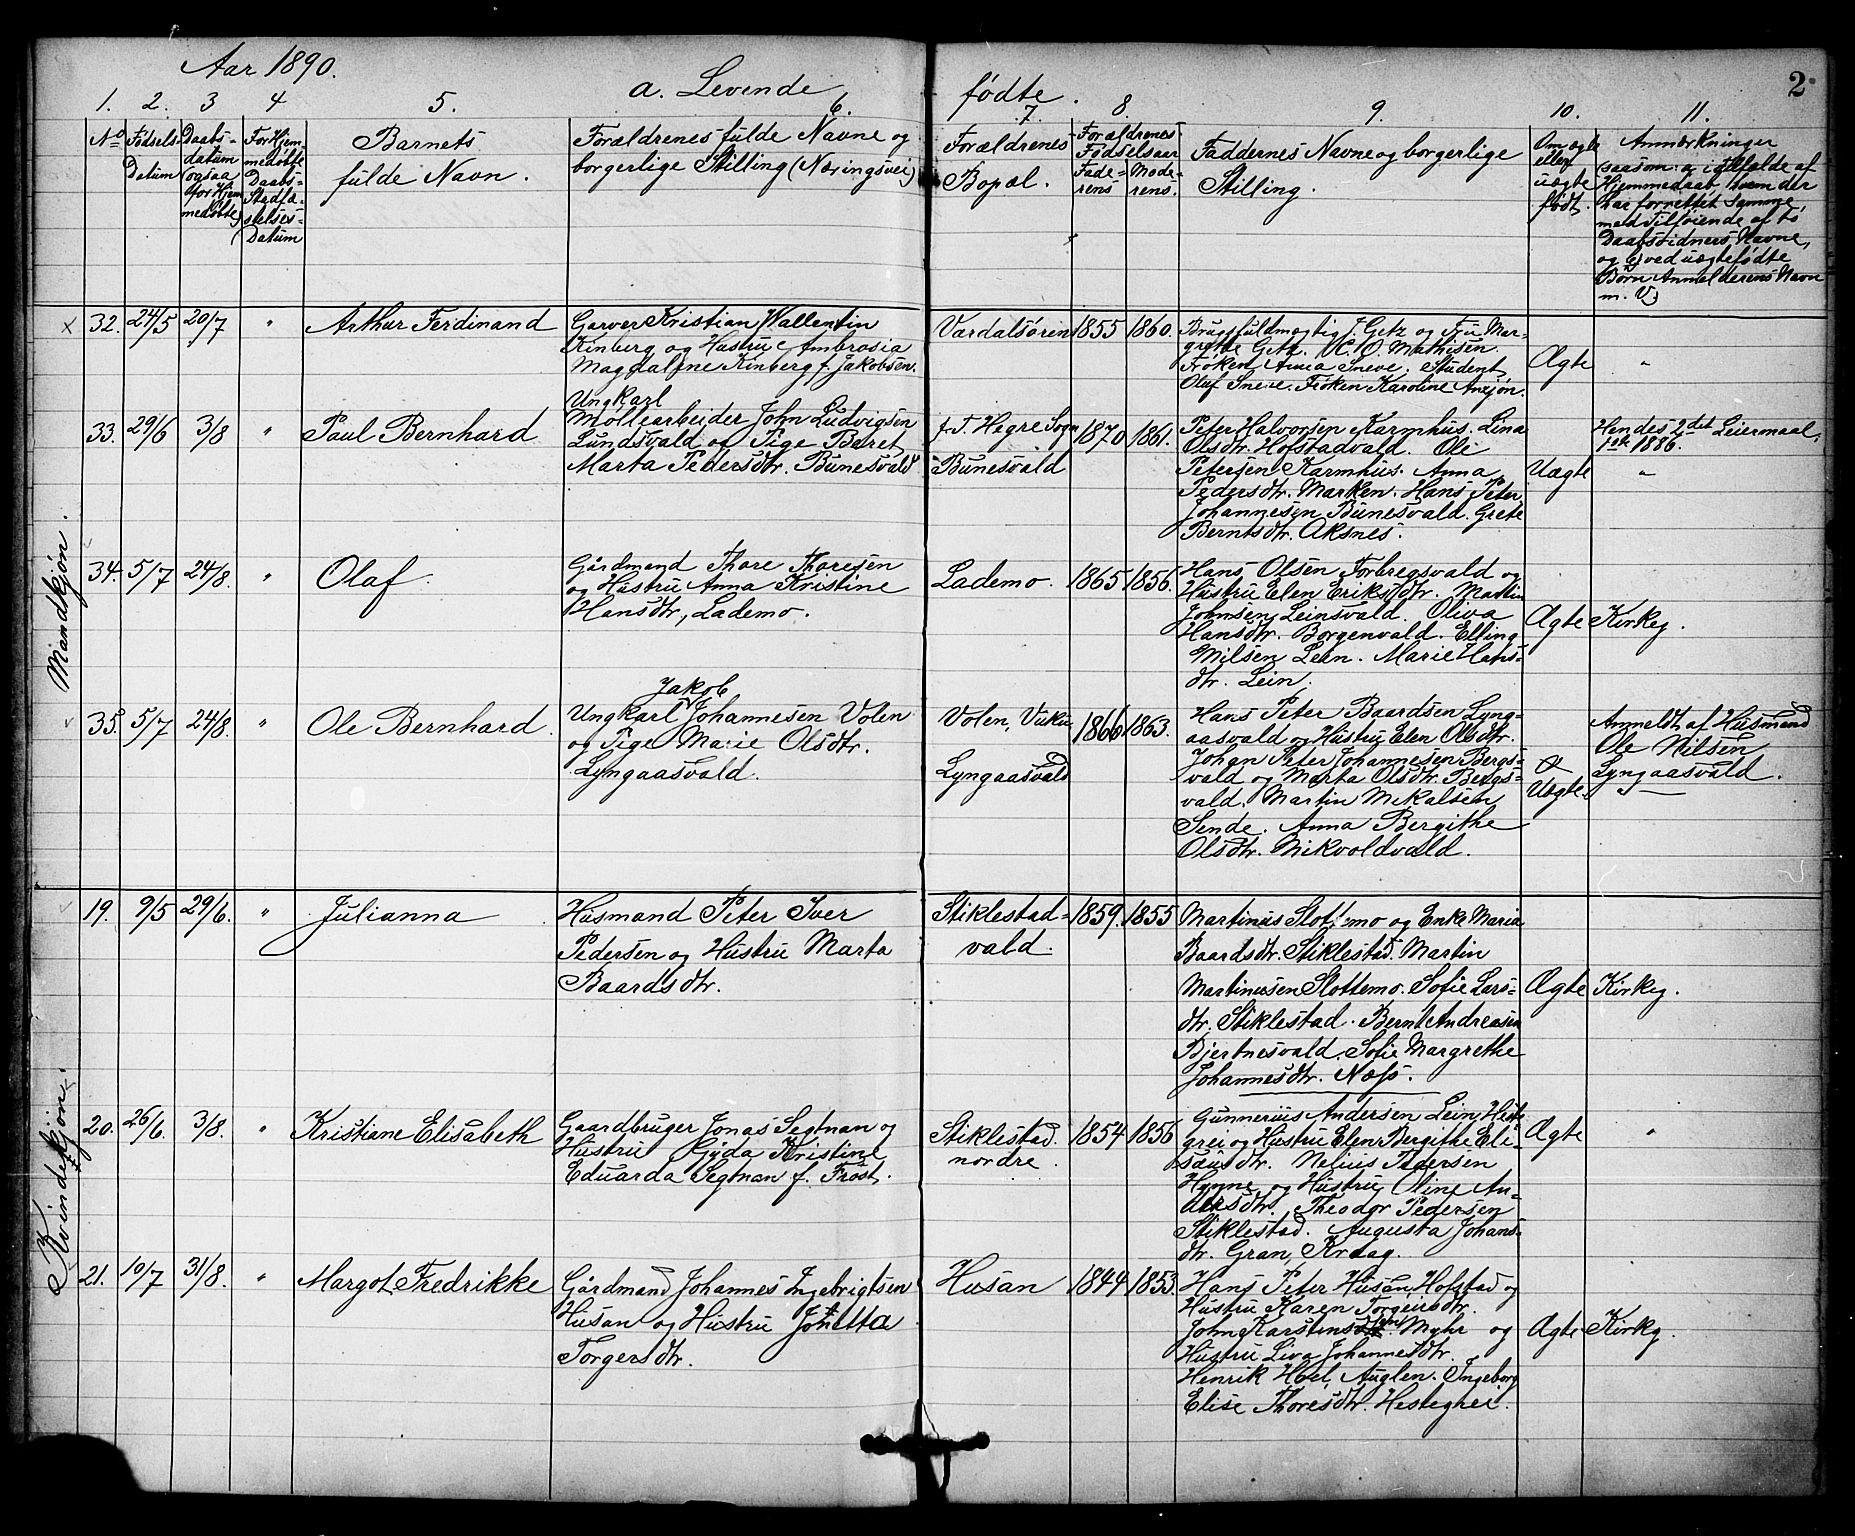 Aar 1890.
a. Levende
fødte.
2
1. 2. 3 4 5. 6. 7. 8 9. 10. 11.
No
Fødsels-
Datum
Daabs-
datum
(ogsaa
for Hjem
medøbte)
For Hjem-
medøbte
Daabs-
Stadfæ-
stelses-
Datum
Barnets
fulde Navn.
Forældrenes fulde Navne og
borgerlige Stilling (Næringsvei)
Forældrenes
Bopæl.
Forældrenes
Fødselsaar
Fade-
rens
Mode-
rens.
Faddernes Navne og borgerlige
Stilling.
Om ægte
eller
uægte
født.
Anmærkninger
(saasom: a, i Tilfælde af
Hjemmedaab, hvem der
har forrettet samme,
med Tilføiende af to
Daabsvidners Navne,
og b) ved uægtefødte
Børn Anmelderens Navn
m. V.)
Mandkjøn.
x 32. 24/5 20/7 " Arthur Ferdinand
Garver Kristian Wallentin
Kinberg og Hustru Ambrosia
Magdalene Kinberg f. Jakobsen.
Værdalsøren 1855 1860.
Brugsfuldmægtig J. Getz og Fru Mar-
grethe Getz. O. Mathisen.
Frøken Anna Sneve. Student
Olaf Sneve. Frøken Karoline Anzjøn.
Ægte "
33. 29/6 3/8 " Paul Bernhard
Ungkarl
Møllearbeider John Ludvigsen
Lundsvald og Pige Beret
Marta Pedersdtr. Bunesvald
f. T. Hegre Sogn
Bunesvald
1870 1861.
Peter Halvorsen Karmhus. Lina
Olsdtr. Hofstadvald. Ole
Petersen Karmhus. Anna
Pedersdtr. Marken. Hans Peter
Johannesen Bunesvald. Grete
Berntsdtr. Aksnes.
Uægte
Hendes 2det Leiermaal.
1ste 1886.
"
34. 5/7 24/8. " Olaf.
Gårdmand Thore Thoresen
og Hustru Anna Kristine
Hansdtr, Lademo.
Lademo. 1865 1856.
Hans Olsen Forbregsvald og
Hustru Elen Eriksdtr. Martin
Johnsen Leinsvald. Oliva
Hansdtr. Borgenvald. Elling
Nilsen Lein. Marie Hans-
dtr. Lein.
Ægte Kirkeg.
35. 5/7 24/8. " Ole Bernhard.
Jakob
Ungkarl Johannesen Volen
og Pige Marie Olsdtr.
Lyngaasvald.
Volen, Vuku
Lyngaasvald
1866 1863.
Hans Peter Baardsen Lyng-
aasvald og Hustru Elen Olsdtr.
Johan Peter Johannesen Bergs-
vald og Marta Olsdtr. Bergs-
vald. Martin Mikalsen
Sende. Anna Bergithe
Olsdtr. Mikvoldvald.
Uægte.
Anmeldt af Husmand
Ole Nilsen
Lyngaasvald.
Kvindekjøn.
19. 9/5 29/6. " Julianna
Husmand Peter Iver
Pedersen og Hustru Marta
Baardsdtr.
Stiklestad-
vald.
1859. 1855
Martinus Slottemo og Enke Maria
Baardsdtr. Stiklestad. Martin
Martinussen Slottemo. Sofie Lars-
dtr. Stiklestad. Bernt Andreasen
Bjertnesvald. Sofie Margrethe
Johannesdtr. Næss.
Ægte Kirkeg.
20. 26/6. 3/8. " Kristiane Elisabeth
Gaardbruger Jonas Segtnan og
Hustru Gyda Kristine
Eduarda Segtnan f. Frost.
Stiklestad.
nordre.
1854 1856
Gunnerius Andersen Lein, Heste-
grei og Hustru Elen Bergithe Eli-
sæusdtr. Nelius Pedersen
Hynne og Hustru Oline An-
dersdtr. Theodor Pedersen
Stiklestad. Augusta Johans-
dtr. Gran, Kraag.
Ægte "
21. 10/7 31/8. " Margot Fredrikke
Gårdmand Johannes Ingebrigtsen
Husan og Hustru Jonetta
Torgersdtr.
Husan 1844 1853.
Hans Peter Husan, Hofstad og
Hustru Karen Torgeirsdtr.
John Karstinsen Myhr og
Hustru Liva Johannesdtr.
Henrik Hoel, Auglen. Ingeborg
Elise Thoresdtr. Hestegrei.
Ægte Kirkg.